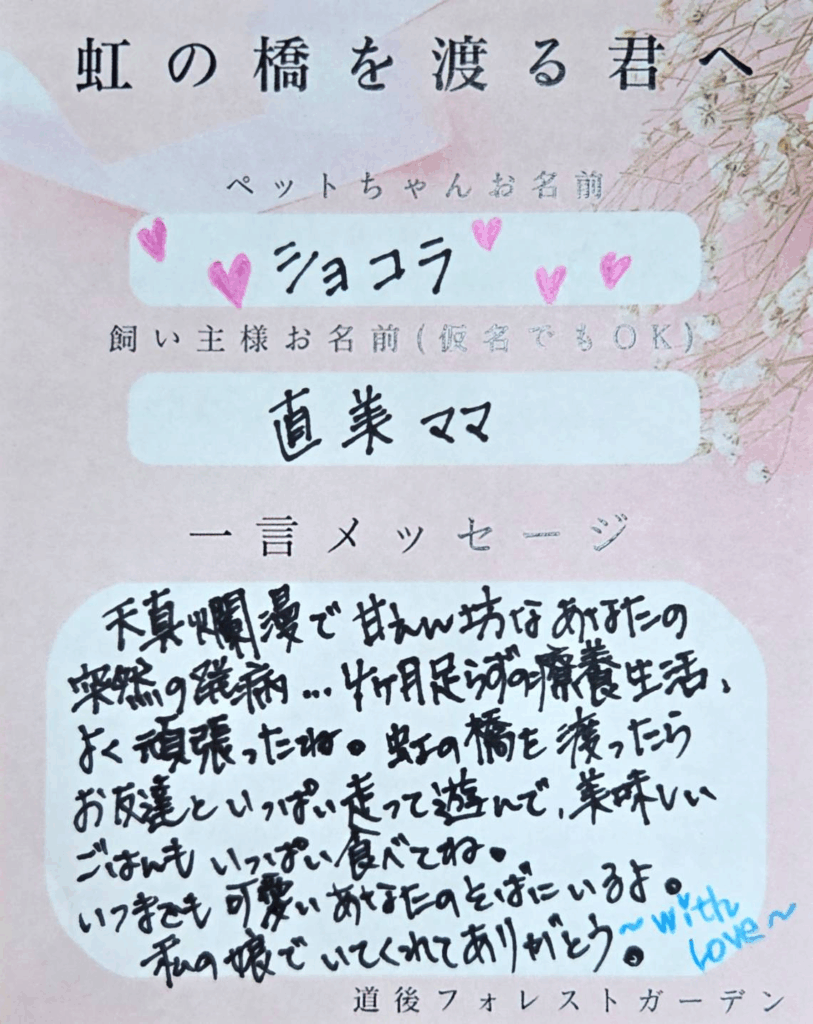 虹の橋を渡る君へ
ペットちゃんお名前
ショコラ
飼い主様お名前(仮名でもOK)
直美ママ
一言メッセージ
天真爛漫で甘えん坊なあなたの
突然の発病…4ヶ月足らずの療養生活、
よく頑張ったね。虹の橋を渡ったら
お友達といっぱい走って遊んで、美味しい
ごはんもいっぱい食べてね。
いつまでも可愛いあなたのそばにいるよ。
私の娘でいてくれてありがとう。
~with
Love~
道後フォレストガーデン